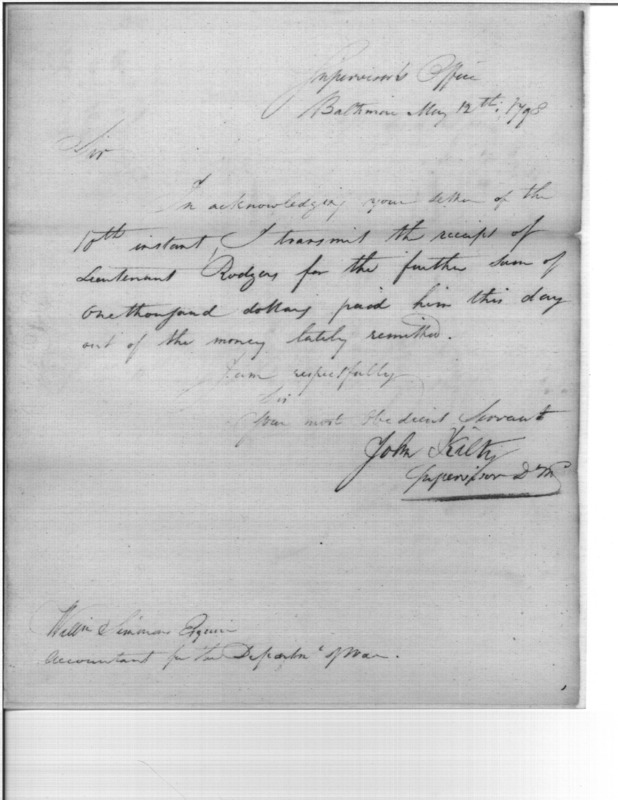 Supervisor's Office
Baltimore May 12th, 1798
Sir
In acknowledging your letter of the
10th instant, I transmit the receipt of
Lieutenant Rodgers for the further sum of
one thousand dollars paid him this day
out of the money lately remitted.
I am respectfully
Sir
Your most Obedient Servant
John Kilty
Supervisor D. Md
Willm Simmons Esquire
Accountant for the Departmt of War.